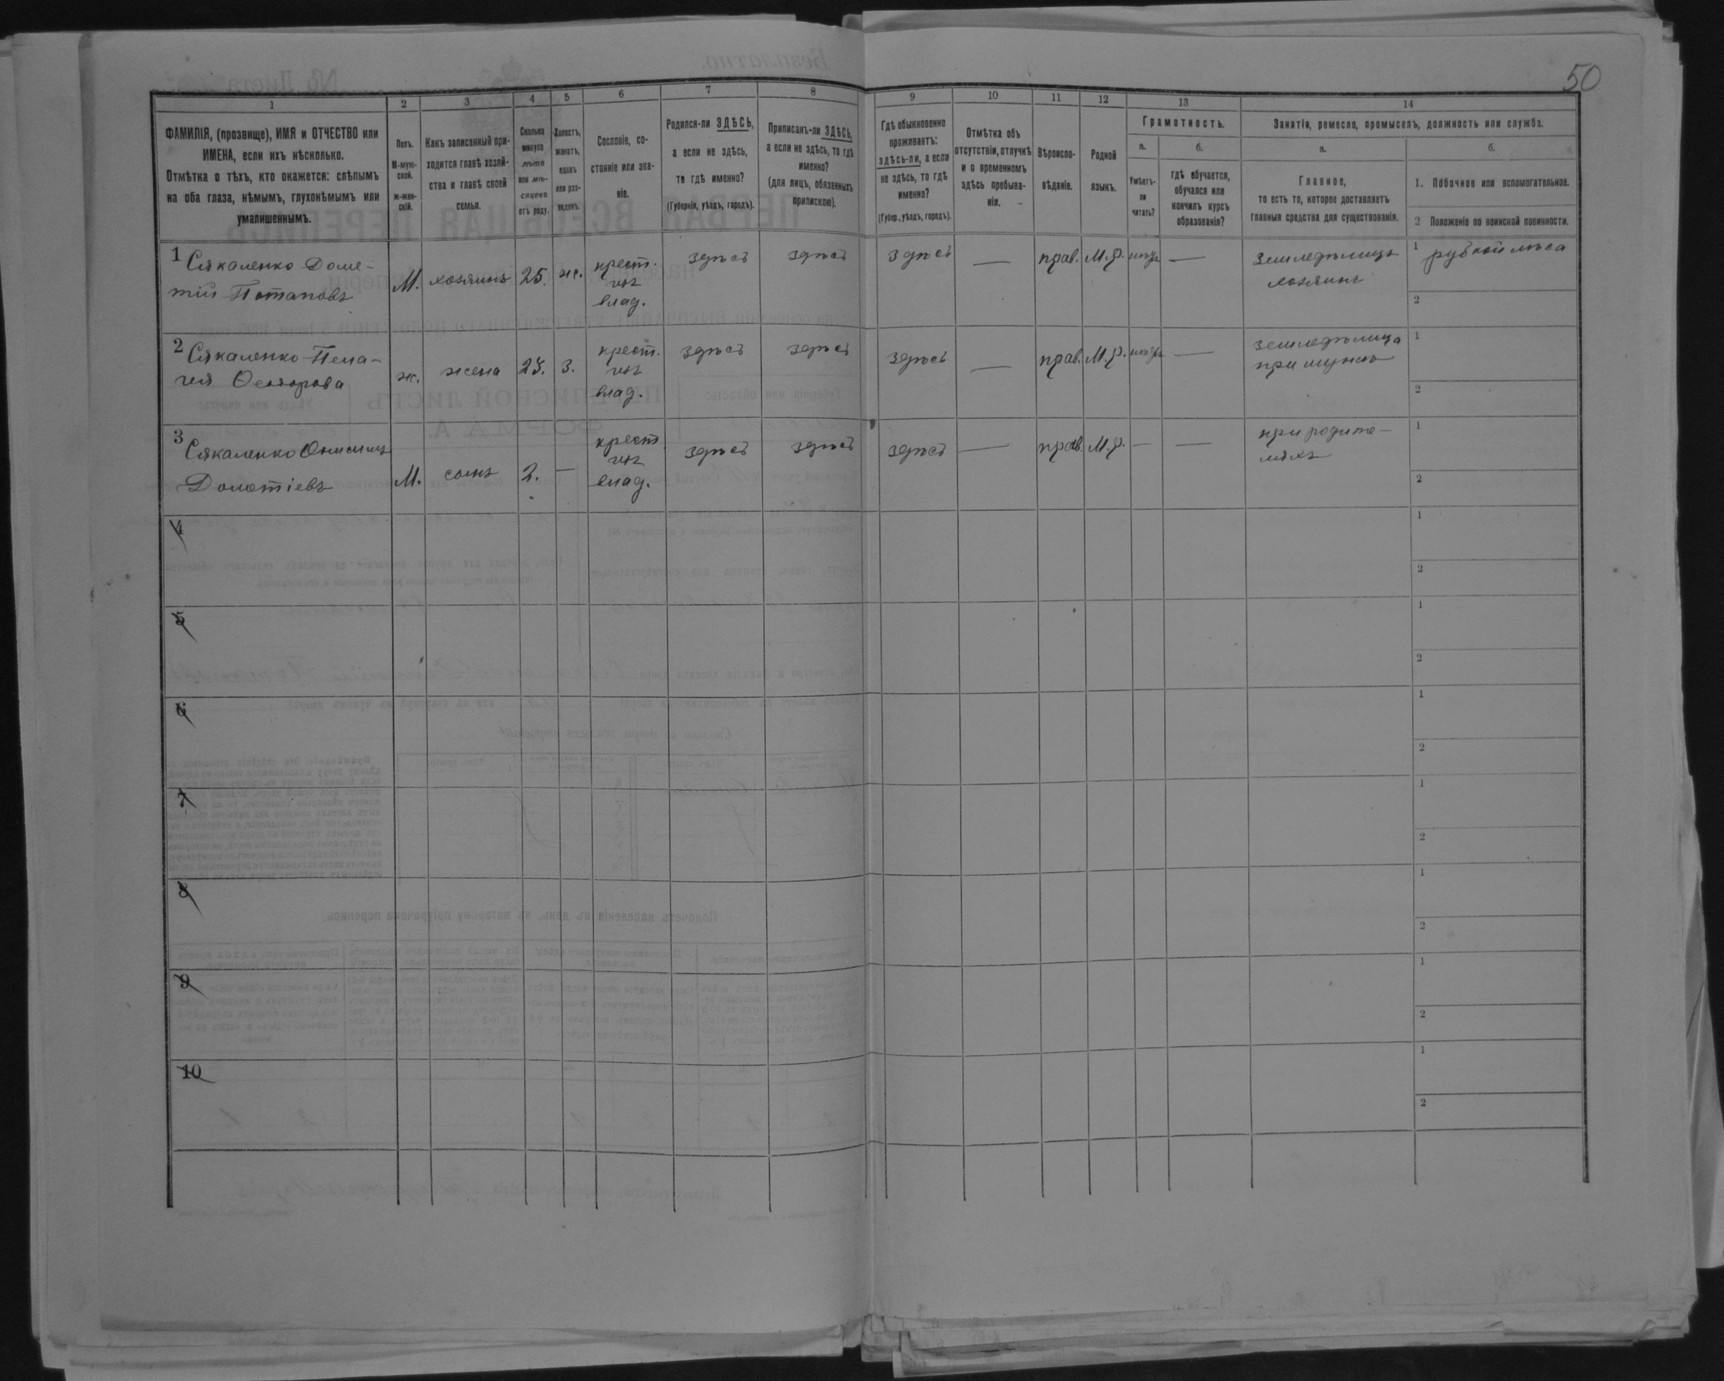 50
1 2 3 4 5 6 7 8 9 10 11 12 13 14
ФАМИЛІЯ, (прозвище), ИМЯ и ОТЧЕСТВО или
ИМЕНА, если ихъ нѣсколько.
Отмѣтка о тѣхъ, кто окажется: слѣпымъ
на оба глаза, нѣмымъ, глухонѣмымъ или
умалишеннымъ.
Полъ.
М-муж-
ской.
Ж-жен-
скій.
Какъ записанный при-
ходится главѣ хозяй-
ства и главѣ своей
семьи.
Сколько
минуло
лѣтъ
или мѣ-
сяцевъ
отъ роду.
Холостъ,
женатъ,
вдовъ
или раз-
веденъ.
Сословіе, со-
стояніе или зва-
ніе.
Родился-ли ЗДѢСЬ,
а если не здѣсь,
то гдѣ именно?
(Губернія, уѣздъ, городъ).
Приписанъ-ли ЗДѢСЬ,
а если не здѣсь, то гдѣ
именно?
(для лицъ, обязанныхъ
припискою).
Гдѣ обыкновенно
проживаетъ:
здѣсь-ли, а если
не здѣсь, то гдѣ
именно?
(Губер., уѣздъ, городъ).
Отмѣтка объ
отсутствіи, отлучкѣ
и о временномъ
здѣсь пребыва-
ніи.
Вѣроиспо-
вѣданіе.
Родной
языкъ.
Грамотность.
а.
Умѣетъ-
ли
читать?
б.
гдѣ обучается,
обучался или
кончилъ курсъ
образованія?
Занятія, ремесло, промыселъ, должность или служба.
а.
Главное,
то есть то, которое доставляетъ
главныя средства для существованія.
б.
1. Побочное или вспомогательное.
2 Положеніе по воинской повинности.
1 Сякаленко Доме-
тій Потаповъ
М. хозяинъ 25. ж.
крест.
изъ
влад.
здѣсь здѣсь здѣсь — прав. М.р. —
земледѣлецъ
хозяинъ
1 рубкой лѣса
2
2 Сякаленко Пела-
гея Ѳеодорова
ж. жена 25. З.
крест.
изъ
влад.
здѣсь здѣсь здѣсь — прав. М.р. —
земледѣлица
при мужѣ
1
2
3 Сякаленко Онисимъ
Дометіевъ
М. сынъ 2. —
крест
изъ
влад.
здѣсь здѣсь здѣсь — прав. М.р. — —
при родите-
ляхъ
1
2
4
1
2
5
1
2
6
1
2
7
1
2
8
1
2
9
1
2
10
1
2